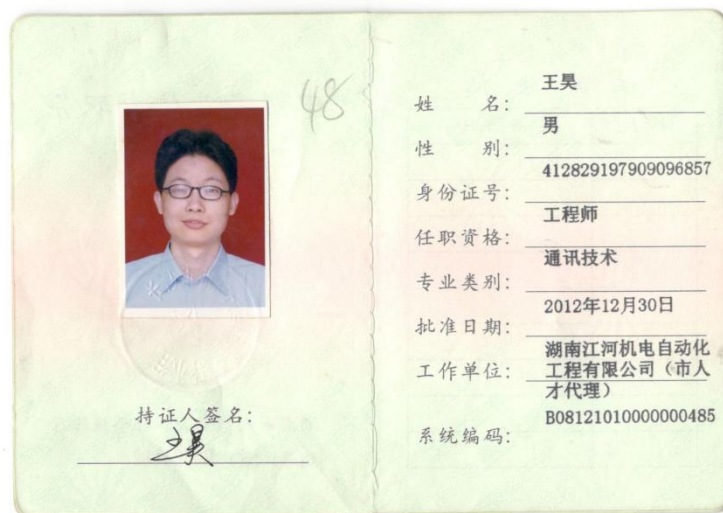 48
持证人签名：
王昊
姓 名： 王昊
性 别： 男
身份证号： 412829197909096857
任职资格： 工程师
专业类别： 通讯技术
批准日期： 2012年12月30日
工作单位： 湖南江河机电自动化
工程有限公司（市人
才代理）
系统编码： B08121010000000485